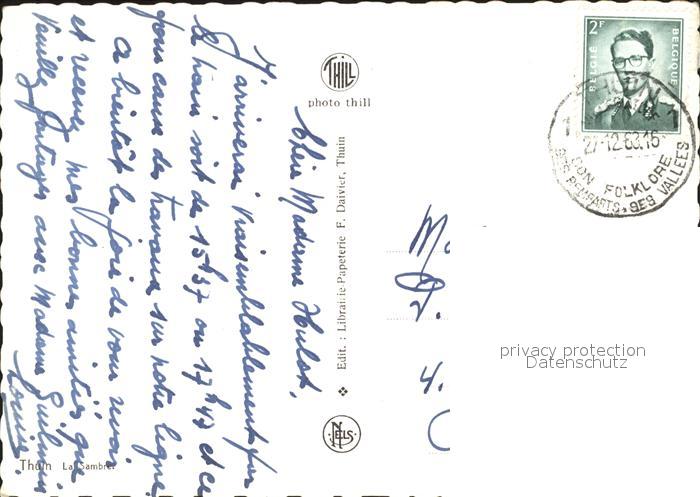 Chère Madame Hulot,
J'arriverai vraisemblablement par
le train soit de 15h37 ou 17h43 et ce
pour cause des travaux sur notre ligne
à bientôt la joie de vous revoir
et recevez mes bonnes amitiés que
Veuillez partager avec Madame Guilmin
Louise
THILL
photo thill
Edit. : Librairie-Papeterie F. Daivier, Thuin
NELS
Thuin La Sambre
2F
BELGIË BELGIQUE
THUIN 1
27-12-63.16
SON FOLKLORE
SES REMPARTS · SES VALLÉES
4.
privacy protection
Datenschutz